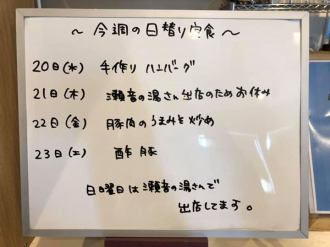 ～今週の日替り定食～
20日(水) 手作りハンバーグ
21日(木) 瀬音の湯さん出店のためお休み
22日(金) 豚肉のうまみそ炒め
23日(土) 酢豚
日曜日は瀬音の湯さんで
出店してます。